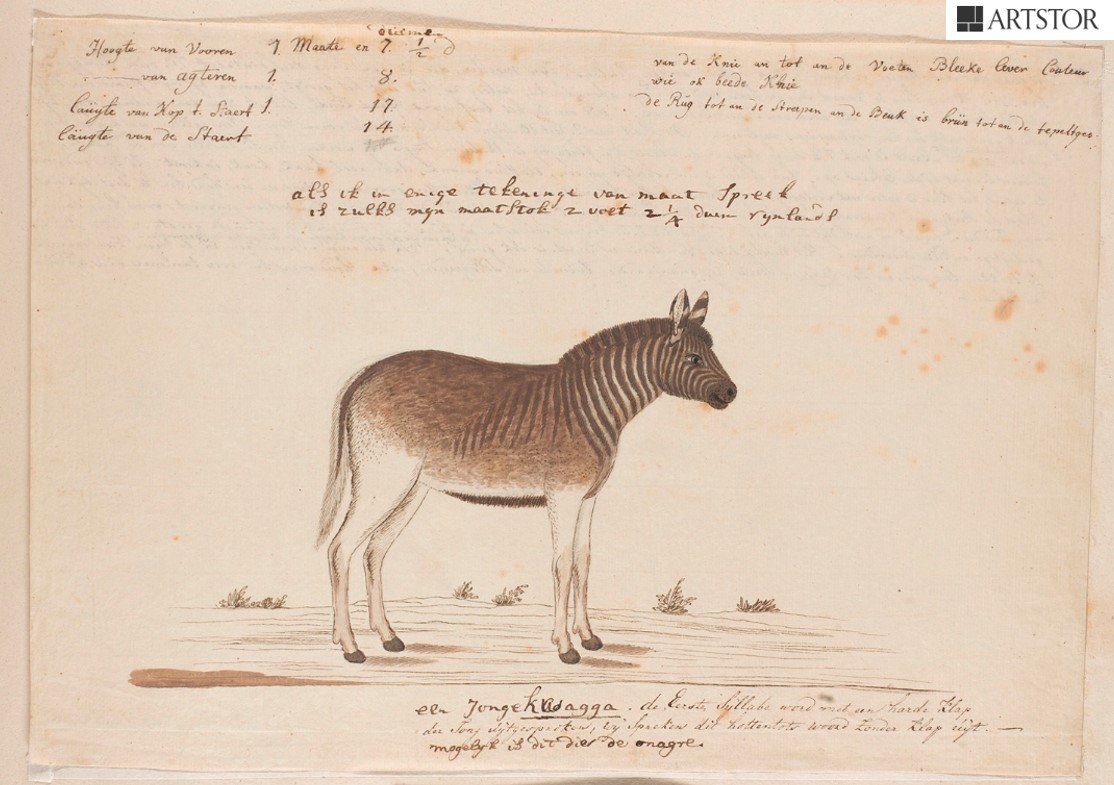 ARTSTOR
duimen
Hoogte van Vooren 1 Maate en 7 1/2 d
van agteren 1. 8.
Läŭgte van Kop t. Staert 1. 17.
Läŭgte van de Staert 14.
van de Knie an tot an de Voeten Bleeke Lever Couleur
wie ok beede Knie
de Rŭg tot an de Streepen an de Beuk is brŭn tot an de
als ik in enige tekeninge van maat Spreek
is zulks mijn maatstok 2 voet 2 1/4 duim rynlands
een Jonge kwagga. de Eerste Syllabe word met een harde Klap
der Tong uytgesproken, wij Spreken dit hottentots woord Zonder Klap uyt.
mogelyk is dit dier de onagre.